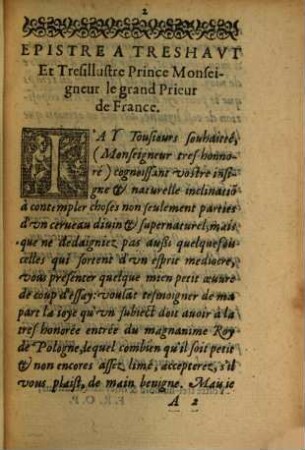 2
EPISTRE A TRESHAVT
Et Tresillustre Prince Monsei-
gneur le grand Prieur
de France.
IAY Tousiours souhaitté,
(Monseigneur tres-honno-
ré) cognoissant vostre insi-
gne & naturelle inclinatiō
à contempler choses non seulement parties
d'vn cerueau diuin & supernaturel, mais
que ne dedaigniez pas außi quelquefois
celles qui sortent d'vn esprit mediocre,
vous presenter quelque mien petit œuure
de coup d'essay: voulāt tesmoigner de ma
part la ioye qu'vn subiect doit auoir à la
tres honorée entrée du magnanime Roy
de Pologne, lequel combien qu'il soit petit
& non encores assez limé, accepterez, s'il
vous plaist, de main benigne. Mau ie
A 2